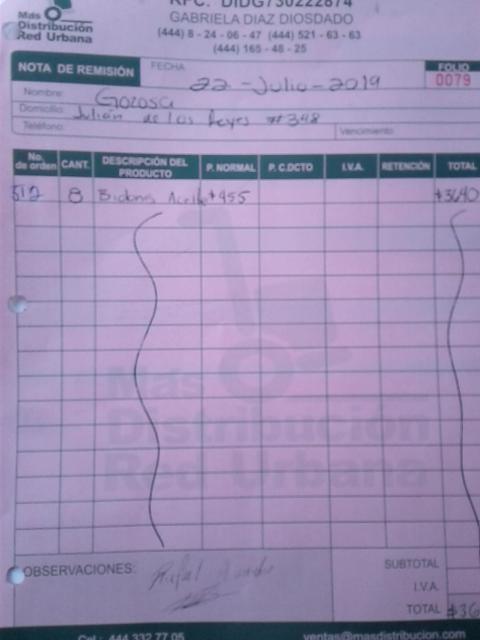 RFC: DIDG730222874
Más
Distribución
Red Urbana
GABRIELA DIAZ DIOSDADO
(444) 8 - 24 - 06 - 47 (444) 521 - 63 - 63
(444) 165 - 48 - 25
NOTA DE REMISIÓN
FECHA
22 - Julio - 2019
FOLIO
0079
Nombre: Gorosa
Domicilio: Julián de los Reyes #348
Teléfono:
Vencimiento
No. de orden CANT. DESCRIPCIÓN DEL PRODUCTO P. NORMAL P. C.DCTO I.V.A. RETENCIÓN TOTAL
512 8 Bidones Aceite $455 $3640
Más
Distribución
Red Urbana
OBSERVACIONES: Rafael
SUBTOTAL
I.V.A.
TOTAL $36
Cel.: 444 332 77 05 ventas@masdistribucion.com